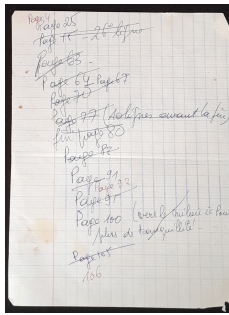 Page 4
Page 25
Page 45 - 26
Page 65
Page 64 Page 67
Page 70
Page 77 (3 lignes avant la fin)
fin page 80
Page 82
Page 91
Page 73
Page 95
Page 100 (vers le milieu
plus de tranquillité
Page 105
106